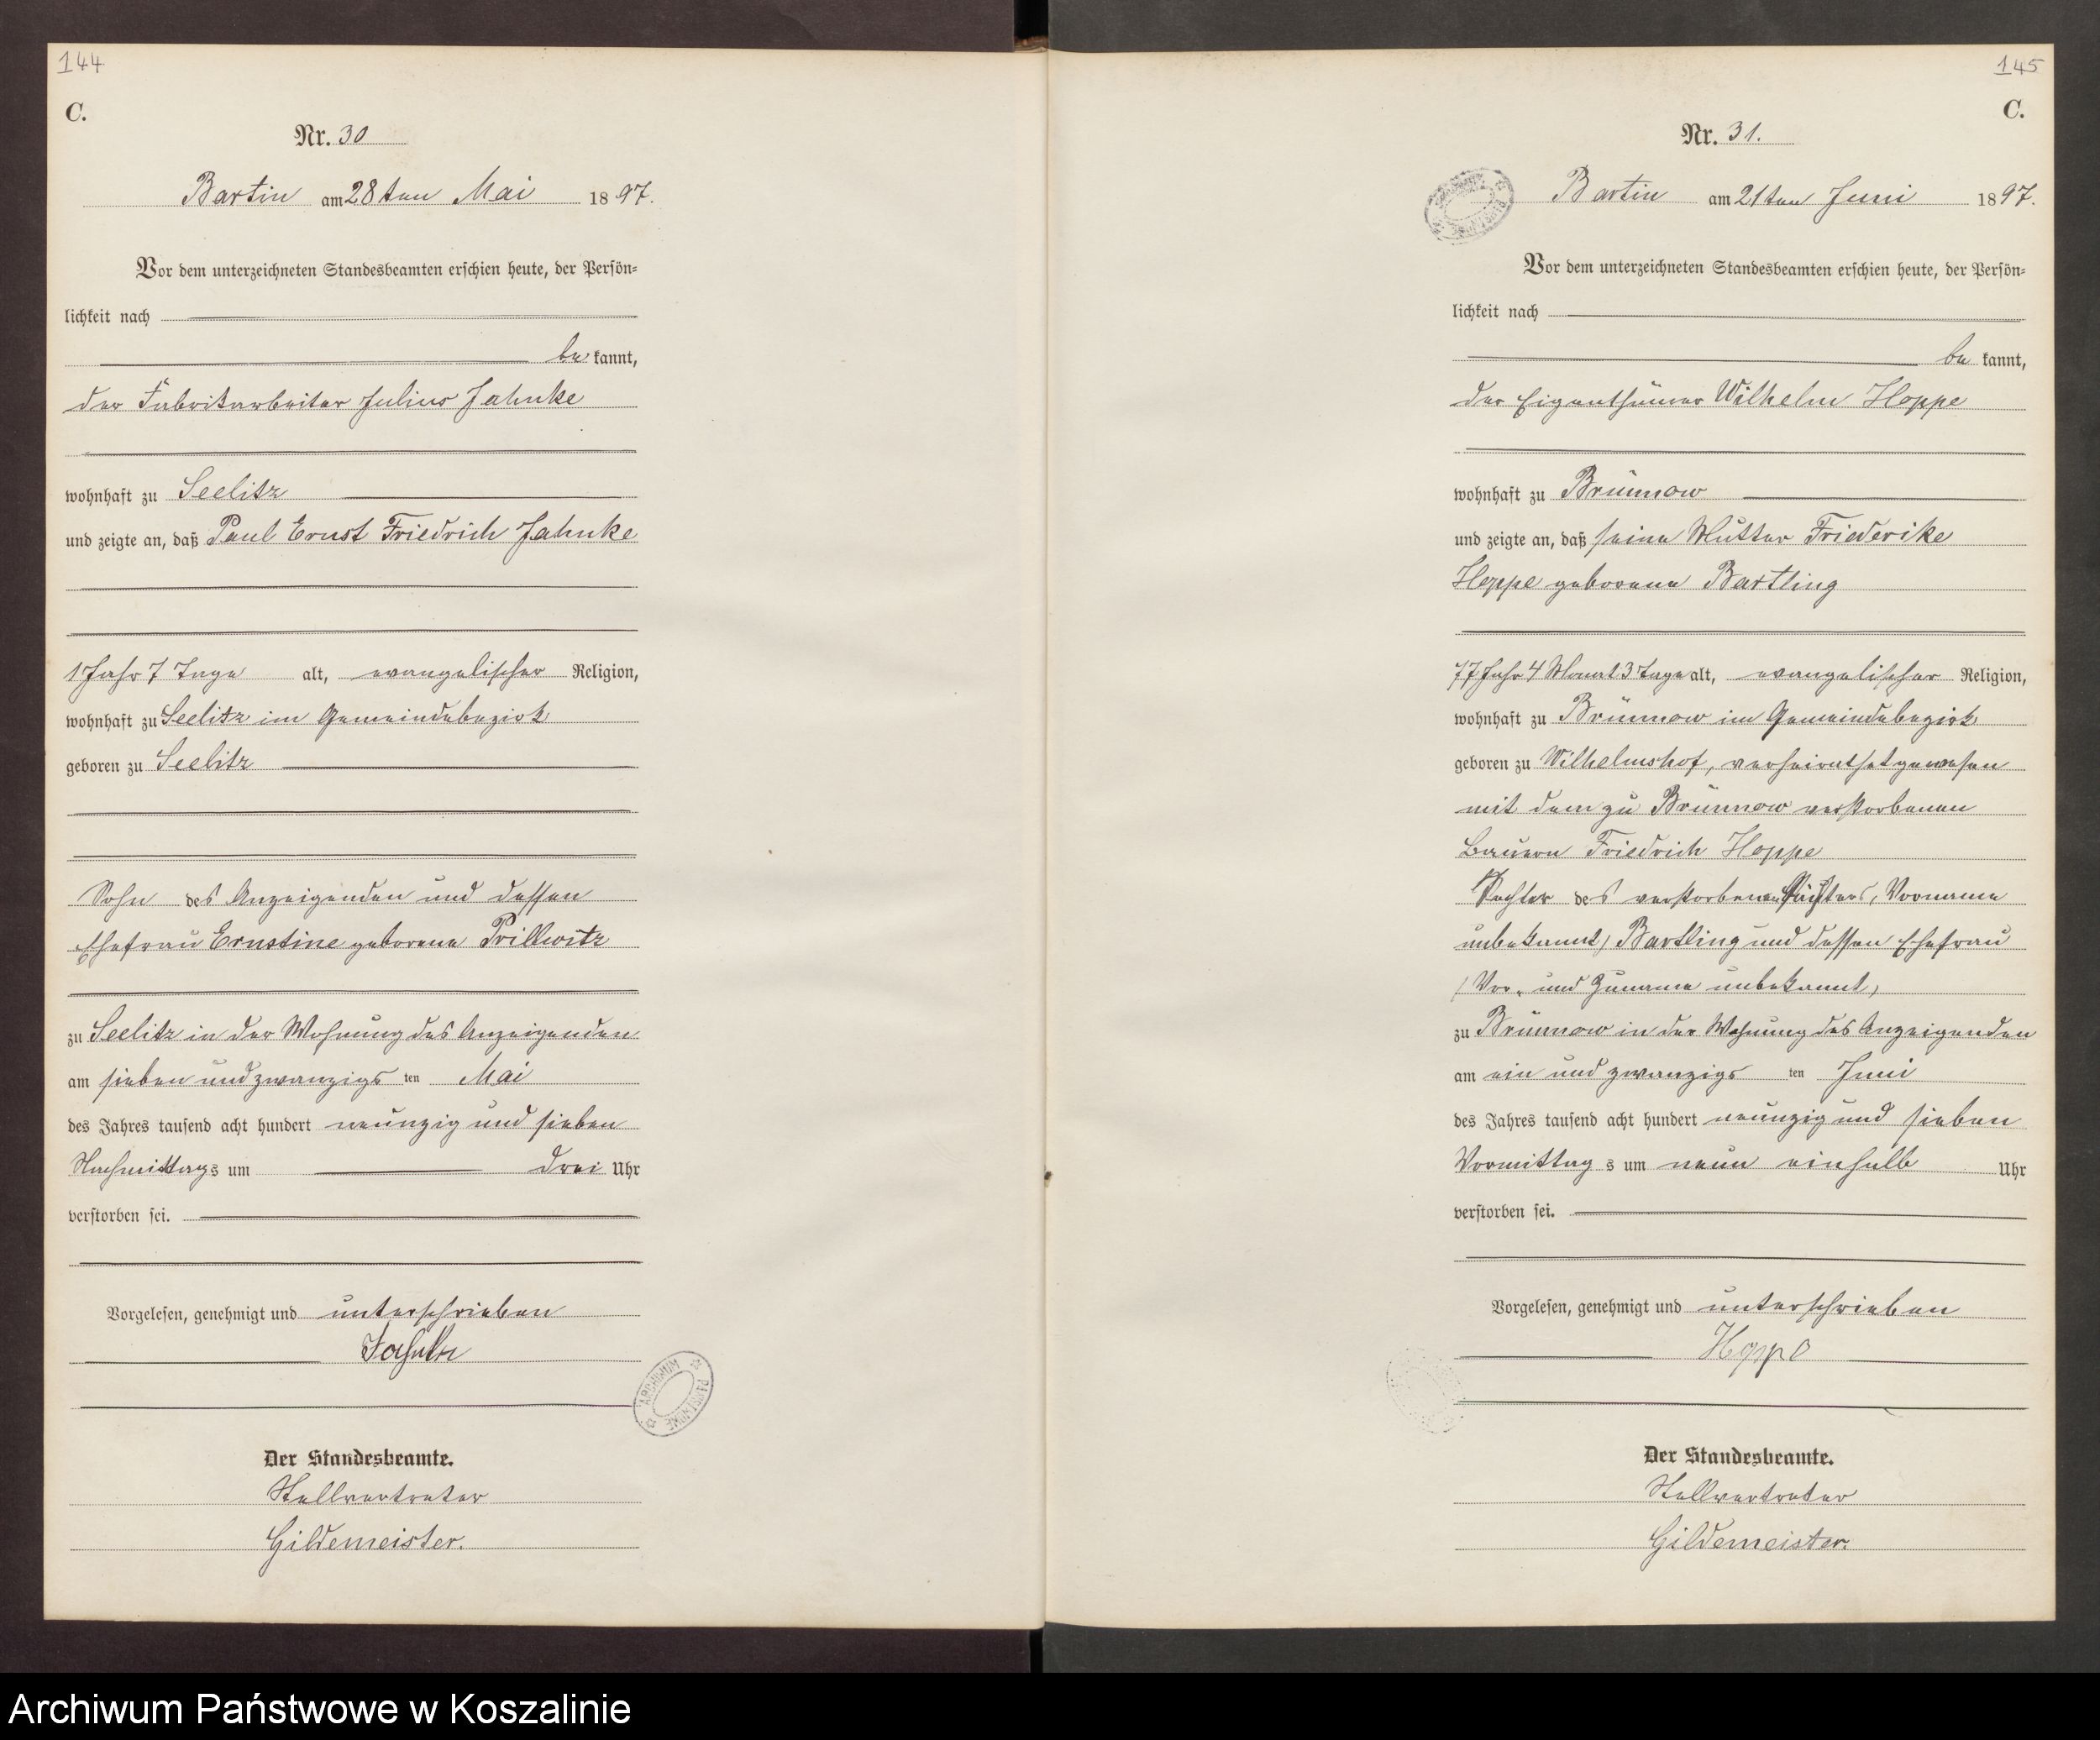 144
C.
Nr. 30
Bartin am 28ten Mai 1897.
Vor dem unterzeichneten Standesbeamten erschien heute, der Persön-
lichkeit nach
bekannt,
der Fabrikarbeiter Julius Jahnke
wohnhaft zu Seelitz
und zeigte an, daß Paul Ernst Friedrich Jahnke
1 Jahr 7 Tage alt, evangelischer Religion,
wohnhaft zu Seelitz im Gemeindebezirk
geboren zu Seelitz
Sohn des Anzeigenden und dessen
Ehefrau Ernstine geborene Prillwitz
zu Seelitz in der Wohnung des Anzeigenden
am sieben und zwanzigs ten Mai
des Jahres tausend acht hundert neunzig und sieben
Nachmittags um drei Uhr
verstorben sei.
Vorgelesen, genehmigt und unterschrieben
Jahnke
ARCHIWUM PAŃSTWOWE
Der Standesbeamte.
Stellvertreter
Gildemeister.
145
C.
Nr. 31.
Bartin am 21ten Juni 1897.
Vor dem unterzeichneten Standesbeamten erschien heute, der Persön-
lichkeit nach
bekannt,
der Eigenthümer Wilhelm Hoppe
wohnhaft zu Brünnow
und zeigte an, daß seine Mutter Friederike
Hoppe geborene Bartling
77 Jahr 4 Monat 3 Tage alt, evangelischer Religion,
wohnhaft zu Brünnow im Gemeindebezirk
geboren zu Wilhelmshof, verheirathet gewesen
mit dem zu Brünnow verstorbenen
Bauern Friedrich Hoppe
Tochter des verstorbenen, Vorname
unbekannt) Bartling und dessen Ehefrau
(Vor- und Zuname unbekannt)
zu Brünnow in der Wohnung des Anzeigenden
am ein und zwanzigs ten Juni
des Jahres tausend acht hundert neunzig und sieben
Vormittags um neun einhalb Uhr
verstorben sei.
Vorgelesen, genehmigt und unterschrieben
Hoppe
Der Standesbeamte.
Stellvertreter
Gildemeister.
Archiwum Państwowe w Koszalinie